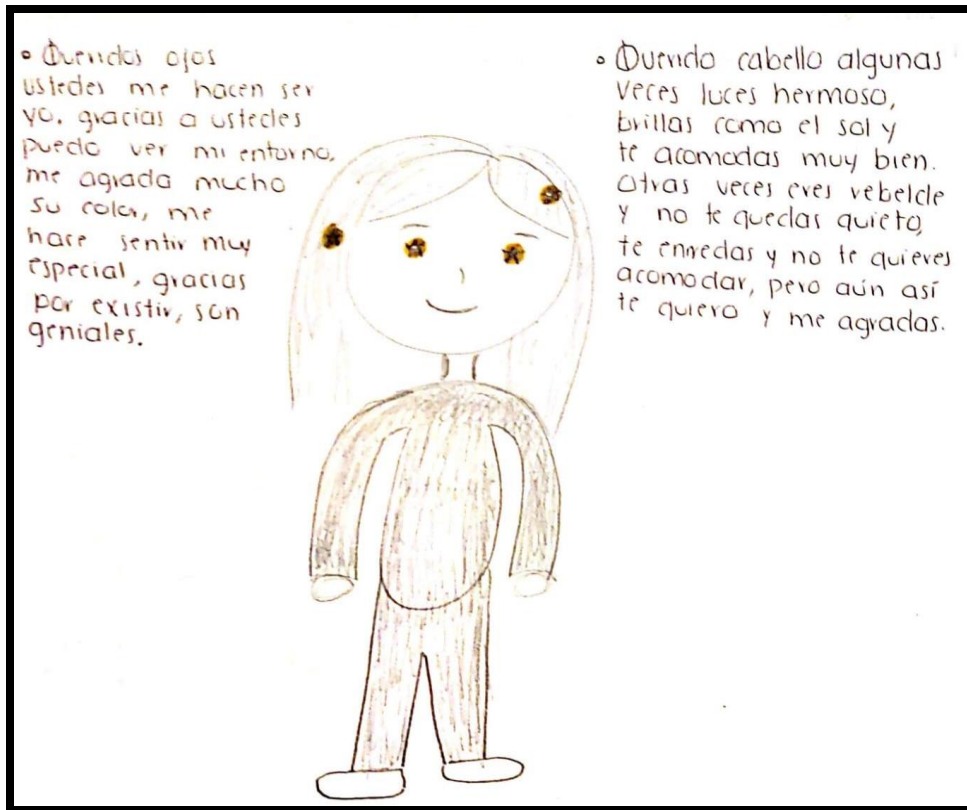 • Queridos ojos
ustedes me hacen ser
yo. gracias a ustedes
puedo ver mi entorno,
me agrada mucho
su color, me
hace sentir muy
especial, gracias
por existir, son
geniales.
• Querido cabello algunas
veces luces hermoso,
brillas como el sol y
te acomodas muy bien.
Otras veces eres rebelde
y no te quedas quieto,
te enredas y no te quieres
acomodar, pero aún así
te quiero y me agradas.